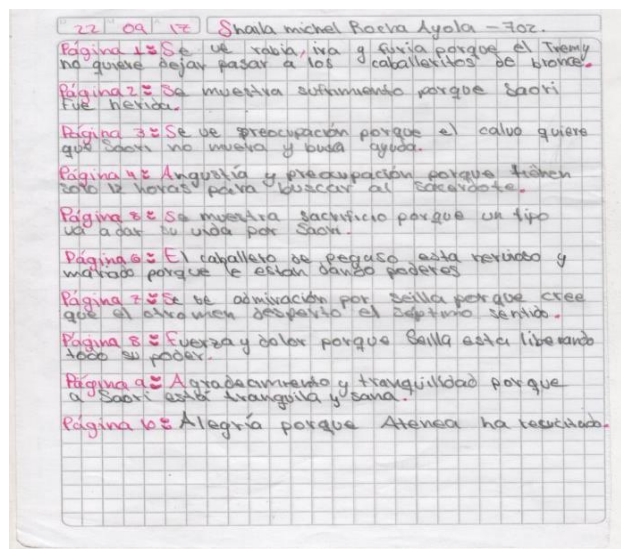 22 09 17 Shaila michel Rocva Ayola - 702.
Página 1: Se ve rabia, ira y furia porque el Tremy
no quiere dejar pasar a los caballeritos de bronce.
Página 2: Se muestra sufrimiento porque Saori
fue herida.
Página 3: Se ve preocupación porque el calvo quiere
que Saori no muera y busa ayuda.
Página 4: Angustia y preocupación porque tienen
solo 12 horas para buscar al sacerdote.
Página 5: Se muestra sacrificio porque un tipo
va a dar su vida por Saori.
Página 6: El caballero de pegaso esta nervioso y
mareado porque le estan dando poderes
Página 7: Se be admiración por seilla porque cree
que el otro men desperto el septimo sentido.
Página 8: Fuerza y dolor porque Seilla esta liberando
todo su poder.
Página 9: Agradecimiento y tranquilidad porque
a Saori está tranquila y sana.
Página 10: Alegría porque Atenea ha resucitado.